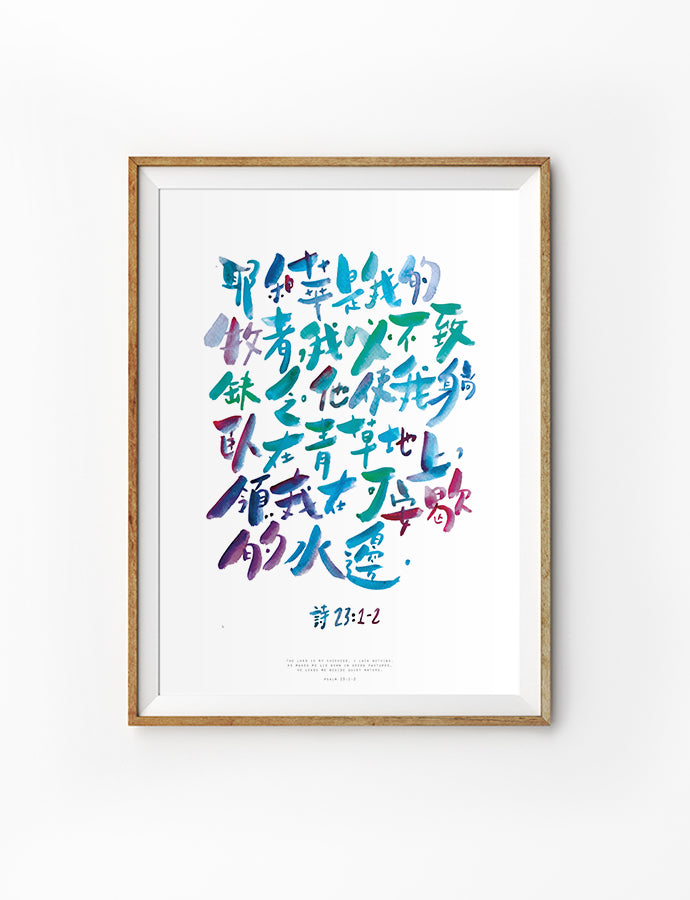 耶和華是我的
牧者,我必不致
缺乏。他使我躺
臥在青草地上,
領我在可安歇
的水邊.
詩 23:1-2
THE LORD IS MY SHEPHERD, I LACK NOTHING.
HE MAKES ME LIE DOWN IN GREEN PASTURES,
HE LEADS ME BESIDE QUIET WATERS.
PSALM 23:1-2